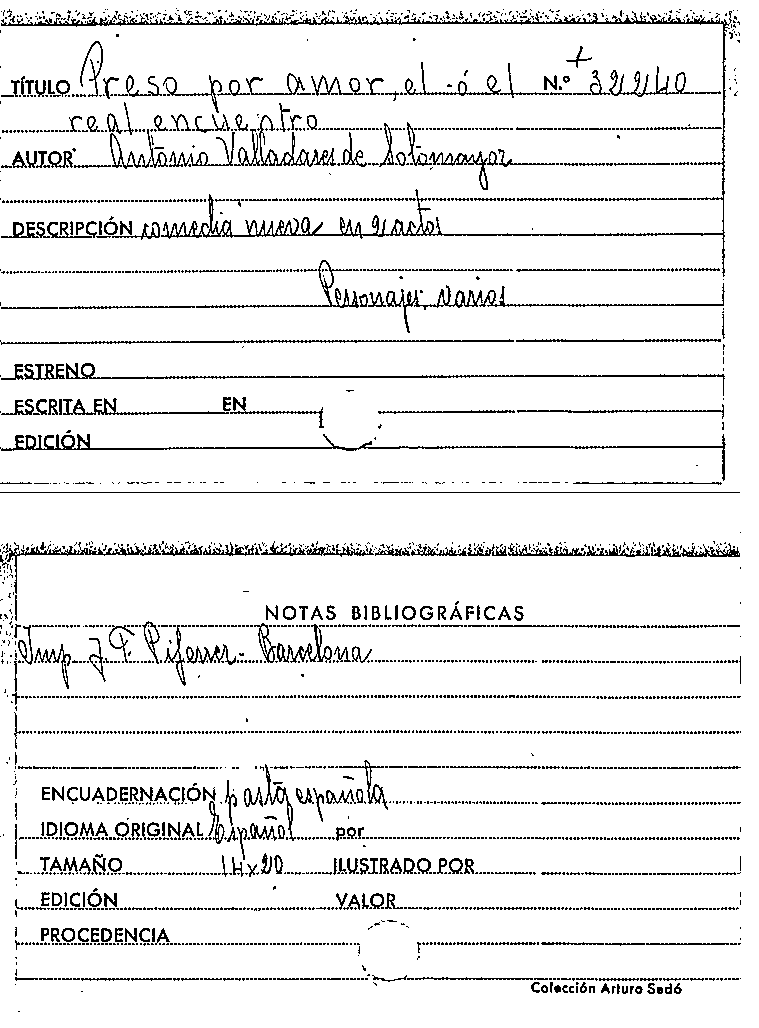 TÍTULO Preso por amor, el -ó el N.º + 32240
real encuentro
AUTOR Antonio Valladares de Sotomayor
DESCRIPCIÓN comedia nueva en 2 actos
Personajes varios
ESTRENO
ESCRITA EN EN
EDICIÓN
NOTAS BIBLIOGRÁFICAS
Imp J. F. Piferrer - Barcelona
ENCUADERNACIÓN pasta española
IDIOMA ORIGINAL Español por
TAMAÑO 14x20 ILUSTRADO POR
EDICIÓN VALOR
PROCEDENCIA
Colección Arturo Sedó